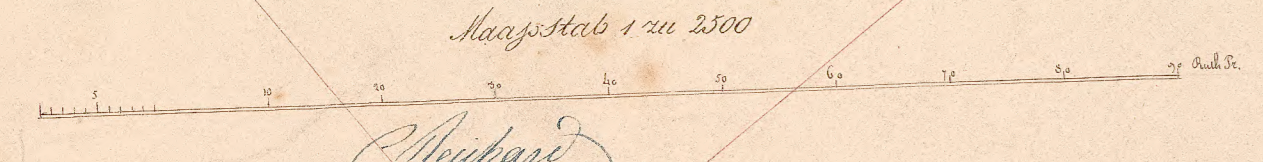 Maaßstab 1 zu 2500
5 10 20 30 40 50 60 70 80 90 Ruth. Pr.